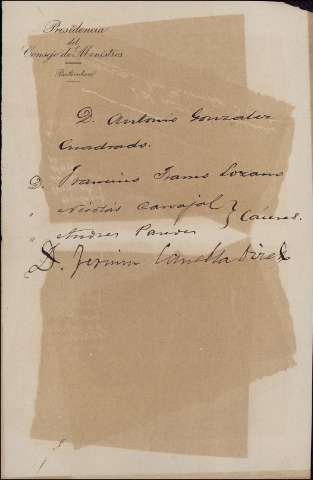 Presidencia
del
Consejo de Ministros
Particular
D. Antonio Gonzalez
Cuadrado.
D. Francisco Ramo Lozano
" Nicolás Carvajal } Cáceres.
" Andres Paredes
D. Fermin Canella